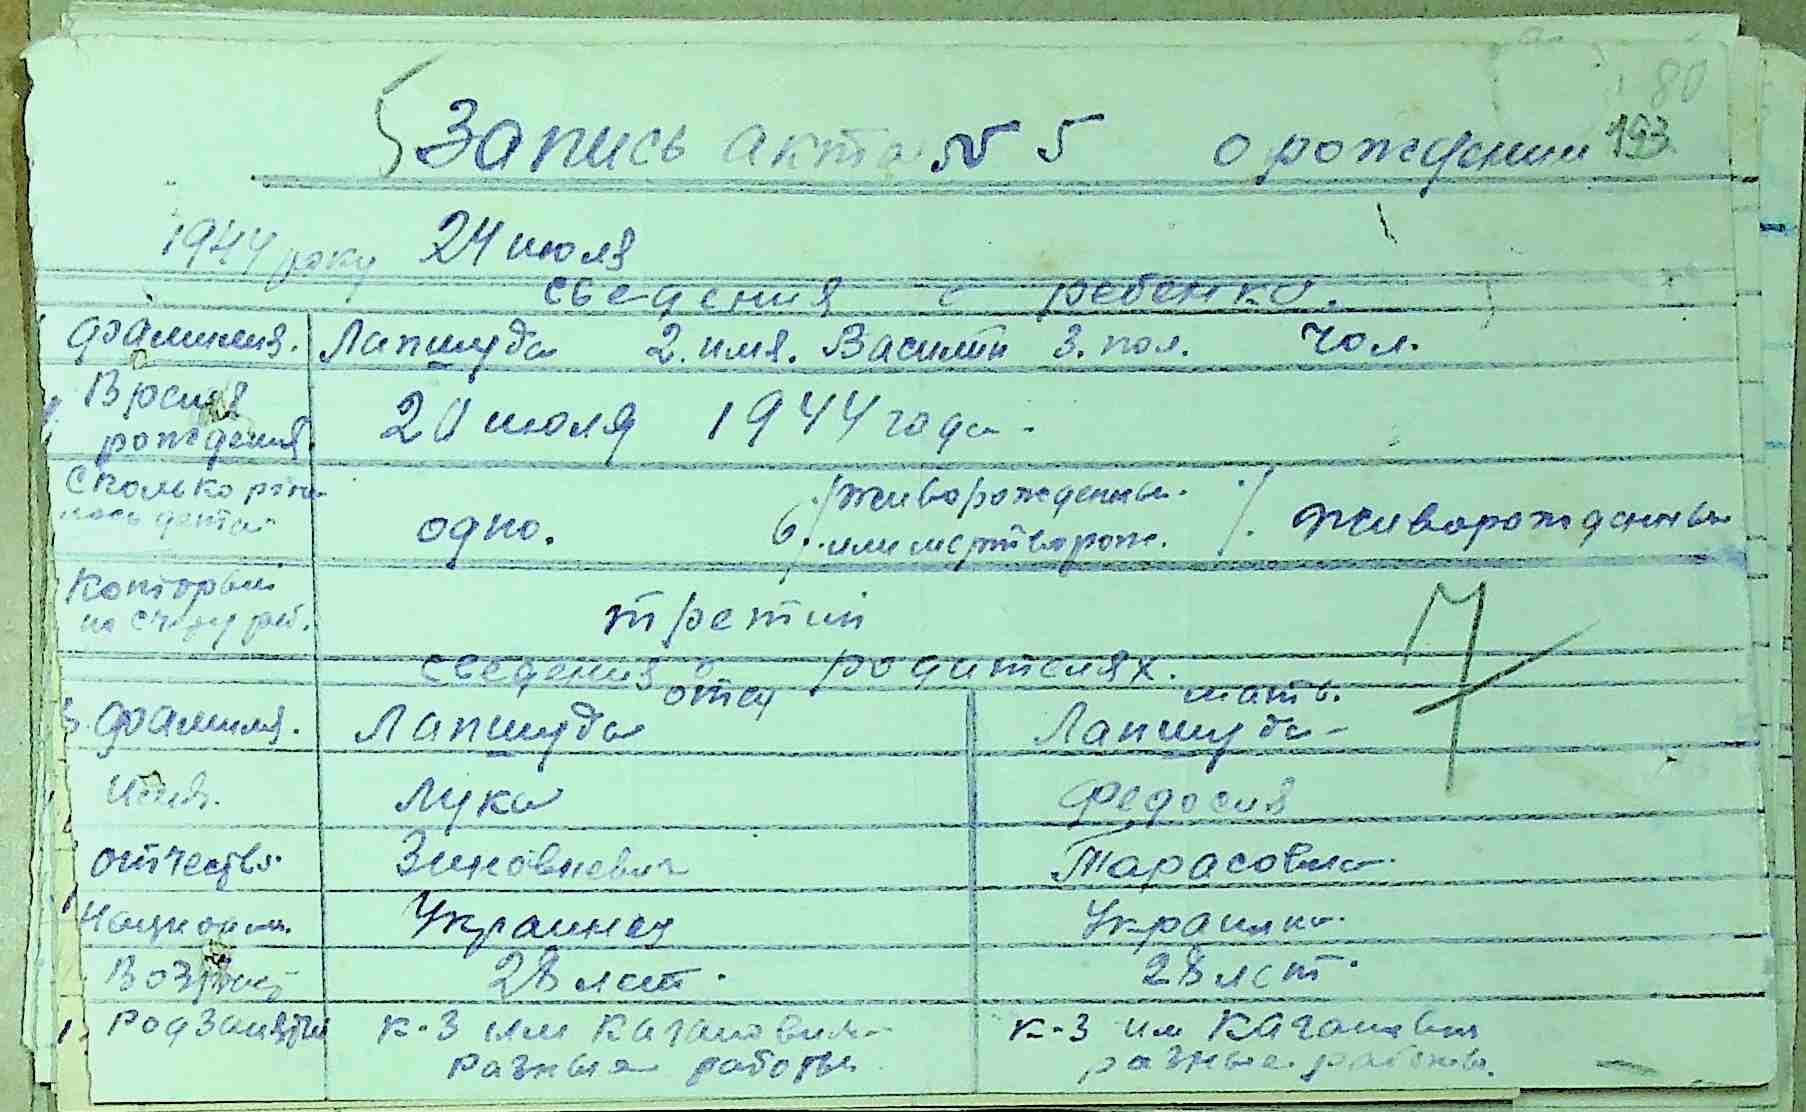 80
Запись акта № 5 о рождении 193
1944 року 24 июля
сведения о ребенка.
фамилия. Лапшуда 2. имя. Василий 3. пол. Чол.
Время рождения 20 июля 1944 года.
Сколько роди-
лось детей одно. 6. живорожденны.
или мертворож. живорожденны
Который
по счету реб. третий
сведения о родителях.
отец мать.
фамилия. Лапшуда Лапшуда
Имя. Лука Федосия
отчество. Зиновиевич Тарасовна
Национ. Украинец Украинка.
Возраст 28 лет. 28 лет.
Род занятий к-з им Кагановича к-з им Кагановича
разные работы разные работы.